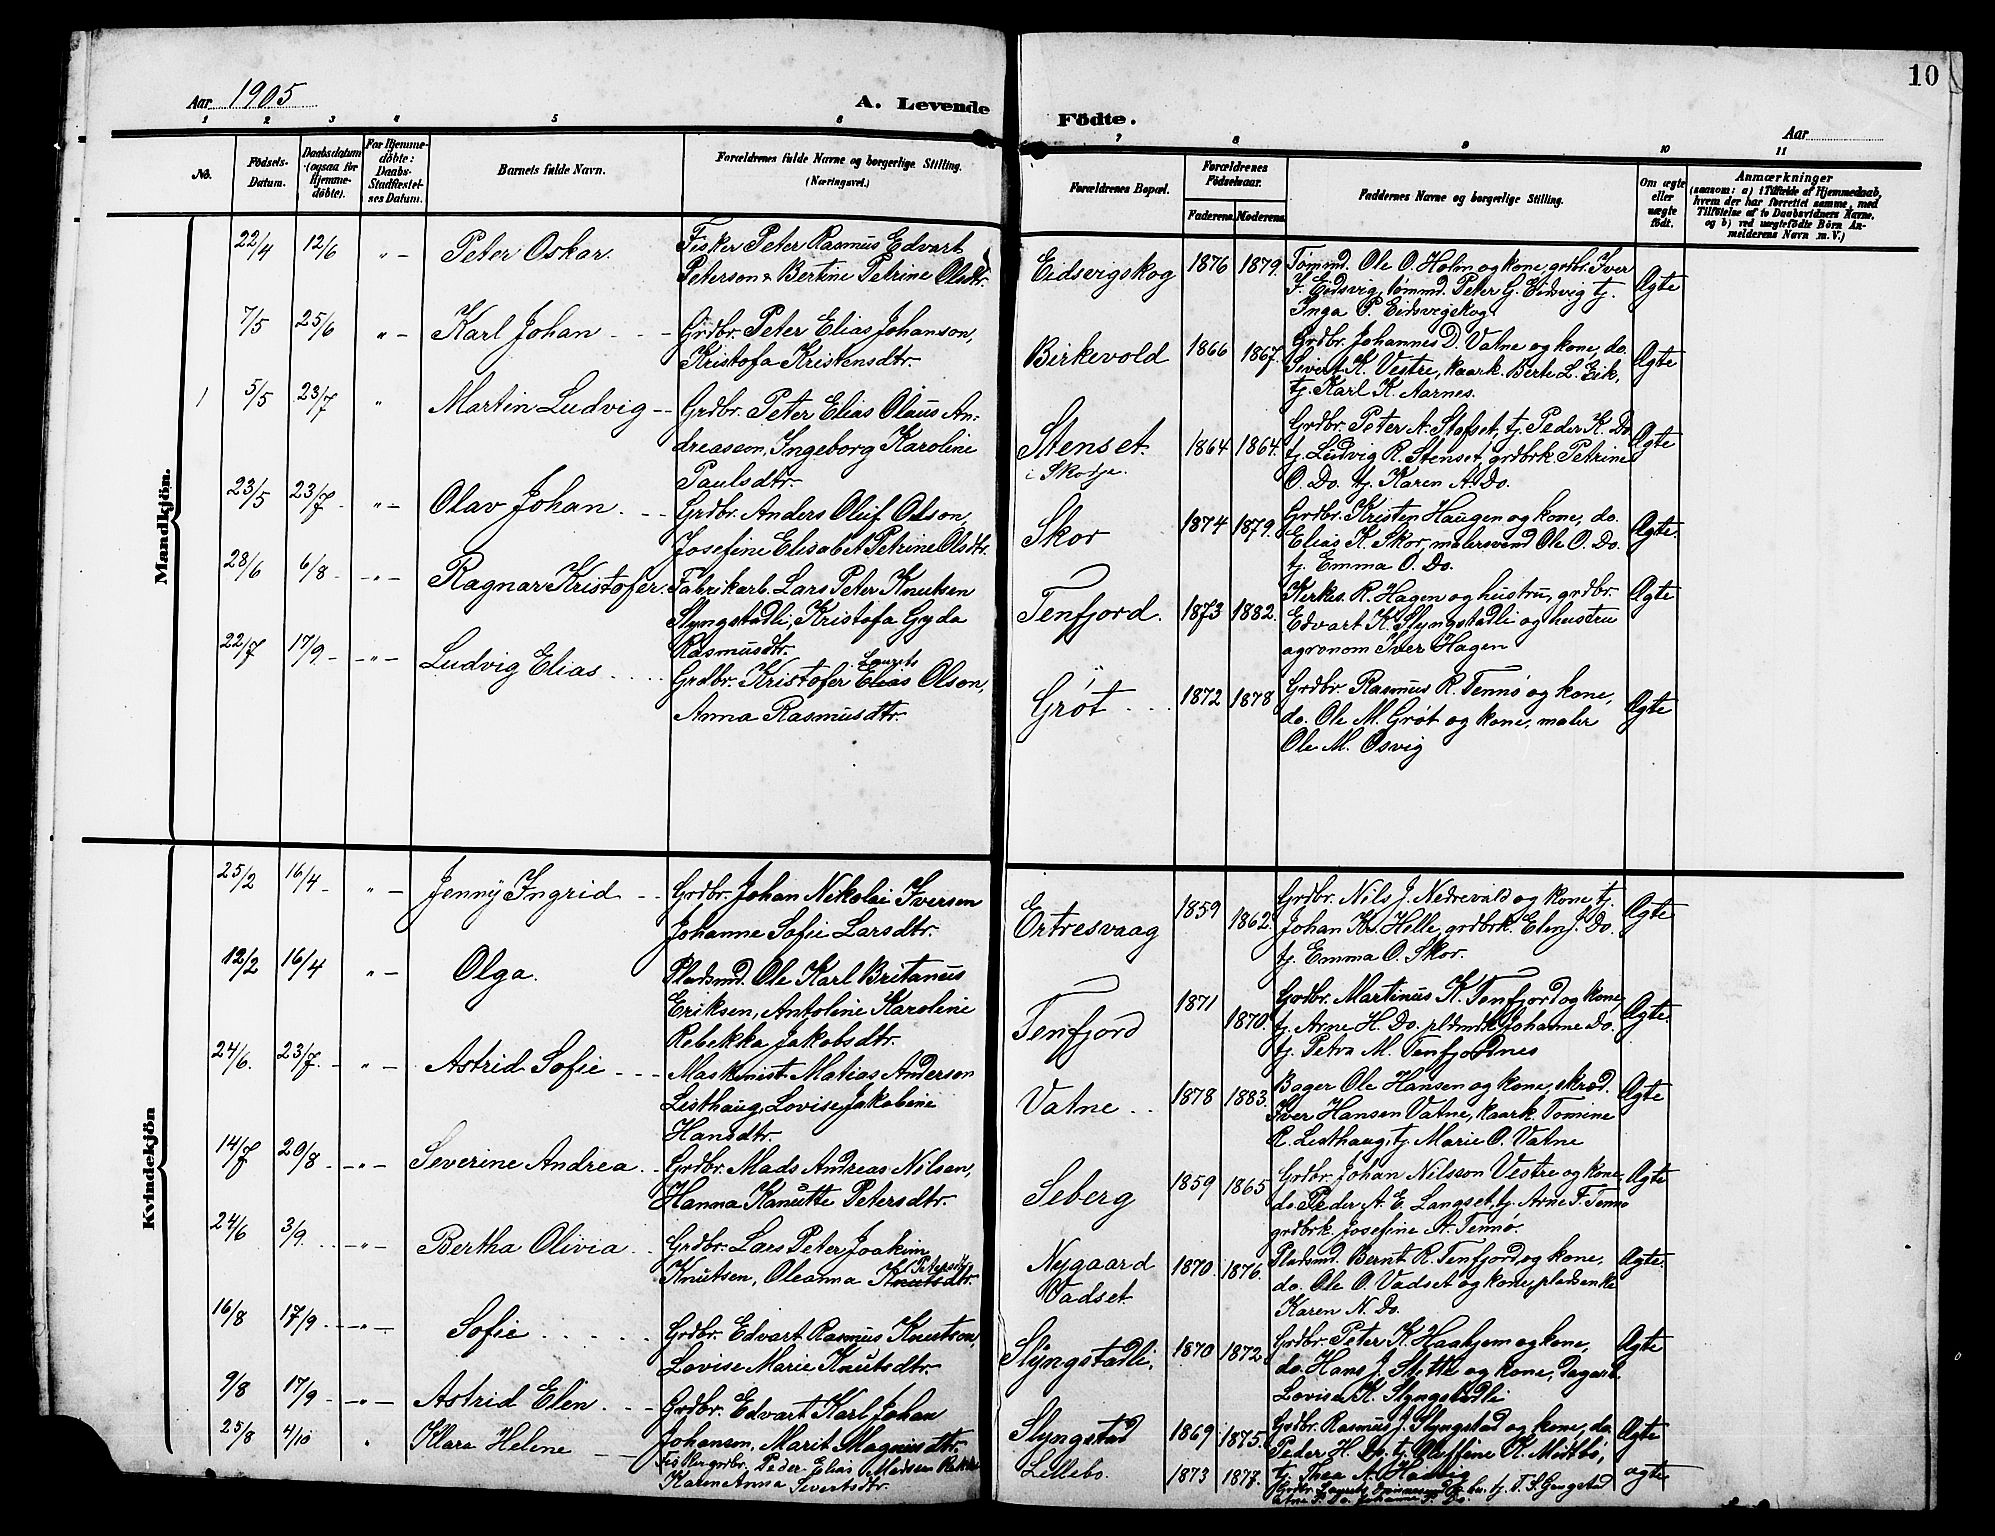 Aar 1905
A. Levende
1 2 3 4 5 6
No.
Födsels-Datum.
Daabsdatum (ogsaa for Hjemmedöbte).
For Hjemmedöbte: Daabs-Stadfæstelses Datum.
Barnets fulde Navn.
Forældrenes fulde Navne og borgerlige Stilling.
(Næringsvei.)
Mandkjön.
22/4 12/6 " Peter Oskar. Fisker Peter Rasmus Edvart
Peterson & Bertine Petrine Olsdtr.
7/5 25/6 " Karl Johan Grdbr. Peter Elias Johanson,
Kristofa Kristensdtr.
1 5/5 23/7 " Martin Ludvig Grdbr. Peter Elias Olaus An-
dreasson, Ingeborg Karoline
Paulsdtr.
23/5 23/7 " Olav Johan Grdbr. Anders Oluf Olson,
Josefine Elisabet Petrine Olsdtr.
28/6 6/8 " Ragnar Kristofer Fabrikarb. Lars Peter Knutsen
Slyngstadli, Kristofa Gyda
Rasmusdtr.
22/7 17/9 " Ludvig Elias Grdbr. Kristofer Elias Laurits Olson,
Anna Rasmusdtr.
Kvindekjön
25/2 16/4 " Jenny Ingrid Grdbr. Johan Nikolai Iversen
Johanne Sofie Larsdtr.
12/2 16/4 " Olga. Pladsmd. Ole Karl Britanus
Eriksen, Antoline Karoline
Rebekka Jakobsdtr.
24/6 23/7 " Astrid Sofie Maskinist Matias Anderson
Listhaug, Lovise Jakobine
Hansdtr.
14/7 20/8 " Severine Andrea Grdbr. Mads Andreas Nilsen,
Hanna Kanutte Petersdtr.
24/6 3/9 " Bertha Olivia Grdbr. Lars Peter Joakim
Knutsen, Oleanna Knutsdtr. Petersdtr.
16/8 17/9 " Sofie Grdbr. Edvart Rasmus Knutson,
Lovise Marie Knutsdtr.
9/8 17/9 " Astrid Elen Grdbr. Edvart Karl Johan
Johansen, Marit Magnusdtr.
25/8 4/10 " Klara Helene Peder Elias Madsen
Karen Anna Sivertsdtr.
10
Födte.
Aar
7 8 9 10 11
Forældrenes Bopæl.
Forældrenes Födselsaar.
Faderens. Moderens.
Faddernes Navne og borgerlige Stilling.
Om ægte eller uægte födt.
Anmærkninger
(saasom: a) i Tilfælde af Hjemmedaab,
hvem der har forrettet samme, med
Tilföielse af to Daabsvidners Navne.
og b) ved uægtefödte Börn An-
melderens Navn m. V.)
Eidsvigskog 1876 1879. Tømmd. Ole O. Holm og kone, grdbr. Iver
I. Eidsvig, tømmd. Peter G. Eidsvig tj.
Inga P. Eidsvigskog Ægte
Birkevold 1866 1867. Grdbr. Johannes D. Vatne og kone, do.
Sivert K. Vestre, kaark. Berte L. Eik,
tj. Karl K. Aarnes. Ægte
Stenset. i Skodje. 1864 1864. Grdbr. Peter A. Stafset, tj. Peder K. Do
tj. Ludvig R. Stenset, grdbrk. Petrine
O. Do. tj. Karen A. Do. Ægte
Skor 1874 1879. Grdbr. Kristen Haugen og kone, do.
Elias K. Skor, malersvend Ole O. Do.
tj. Emma O. Do. Ægte
Tenfjord. 1873 1882. Kirkes. R. Hagen og hustru, grdbr.
Edvart K. Slyngstadli og hustru
agronom Iver Hagen Ægte
Grøt 1872 1878 Grdbr. Rasmus R. Tennø og kone,
do. Ole M. Grøt og kone, maler
Ole M. Osvig Ægte
Ertresvaag 1859 1862. Grdbr. Nils J. Nedrevald og kone tj.
Johan Ks. Helle, grdbrk. Elen J. Do.
tj. Emma O. Skor. Ægte
Tenfjord 1871 1870. Grdbr. Martinus K. Tenfjord og kone
tj. Arne H. Do. pldmdk. Johanne Do.
tj. Petra M. Tenfjordnes Ægte.
Vatne 1878 1883. Bager Ole Hansen og kone, skræd.
Iver Hansen Vatne, kaark. Tomine
R. Listhaug, tj. Marie O. Vatne Ægte
Seberg 1859 1865 Grdbr. Johan Nilsson Vestre og kone
do. Peder A. E. Langset, tj. Arne F. Tennø
grdbrk. Josefine A. Tennø. Ægte
Nygaard Vadset 1870. 1876. Pladsmd. Bernt R. Tenfjord og kone,
do. Ole O. Vadset og kone, pladsenke
Karen N. Do. Ægte.
Slyngstadli, 1870 1872 Grdbr. Peter K. Haahjem og kone,
do. Hans J. Slette og kone, dagarb.
Lovise K. Slyngstadli Ægte
Slyngstad 1869 1875. Grdbr. Rasmus J. Slyngstad og kone, do.
Peder H. Do. tj. Olufine O. Midtbø,
tj. Thea A. Ægte
Lillebø. 1873 1877. ægte